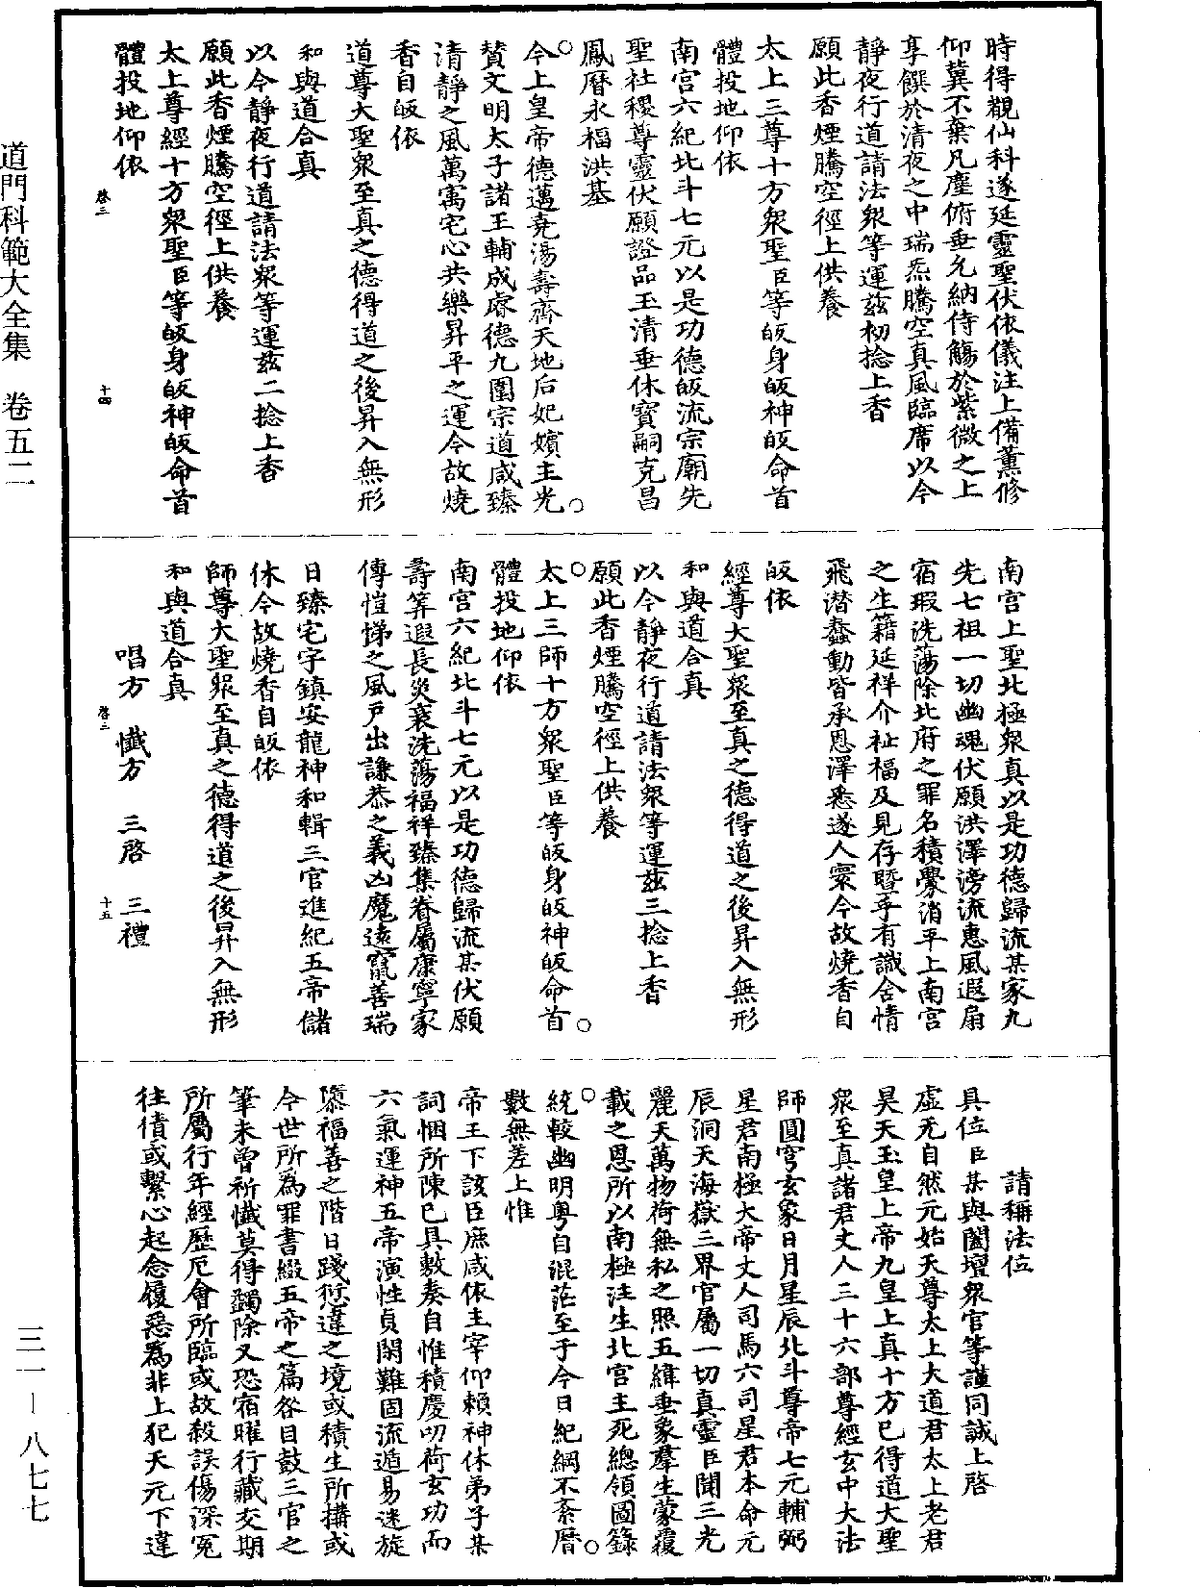 時得觀仙科遂延靈聖伏依儀注上備薰修
仰冀不棄凡塵俯垂允納侍觴於紫微之上
享饌於清夜之中瑞炁騰空真風臨席以今
靜夜行道請法衆等運茲初捻上香
願此香煙騰空徑上供養
太上三尊十方衆聖臣等皈身皈神皈命首
體投地仰依
南宮六紀北斗七元以是功德皈流宗廟先
聖社稷尊靈伏願證品玉清垂休寶嗣克昌
鳳曆永福洪基
○今上皇帝德邁堯湯壽齊天地后妃嬪主光○
賛文明太子諸王輔成睿德九圍宗道咸臻
清靜之風萬寓宅心共樂昇平之運今故燒
香自皈依
道尊大聖衆至真之德得道之後昇入無形
和與道合真
以今靜夜行道請法衆等運茲二捻上香
願此香煙騰空徑上供養
太上尊經十方衆聖臣等皈身皈神皈命首
體投地仰依
啓三 十四
南宮上聖北極衆真以是功德歸流某家九
先七祖一切幽魂伏願洪澤滂流惠風遐扇
宿瑕洗蕩除北府之罪名積釁消平上南宮
之生籍延祥介祉福及見存曁乎有識含情
飛潛蠢動皆承恩澤悉遂人寰今故燒香自
皈依
經尊大聖衆至真之德得道之後昇入無形
和與道合真
以今靜夜行道請法衆等運茲三捻上香
願此香煙騰空徑上供養
○太上三師十方衆聖臣等皈身皈神皈命首○
體投地仰依
南宮六紀北斗七元以是功德歸流某伏願
壽筭遐長災衰洗蕩福祥臻集眷屬康寧家
傳愷悌之風戶出謙恭之義凶魔遠竄善瑞
日臻宅宇鎮安龍神和輯三官進紀五帝儲
休今故燒香自皈依
師尊大聖衆至真之德得道之後昇入無形
和與道合真
唱方　懺方　三啓　三禮
啓三 十五
請稱法位
具位臣某與闔壇衆官等謹同誠上啓
虛无自然元始天尊太上大道君太上老君
昊天玉皇上帝九皇上真十方已得道大聖
衆至真諸君丈人三十六部尊經玄中大法
師圓穹玄象日月星辰北斗尊帝七元輔弼
星君南極大帝丈人司馬六司星君本命元
辰洞天海嶽三界官屬一切真靈臣聞三光
麗天萬物荷無私之照五緯垂象羣生蒙覆
載之恩所以南極注生北宮主死總領圖錄
○統較幽明粤自混茫至于今日紀綱不紊曆○
數無差上惟
帝王下該臣庶咸依主宰仰賴神休弟子某
詞悃所陳已具敷奏自惟積慶叨荷玄功而
六氣運神五帝演性貞閑難固流遁易迷旋
隳福善之階日踐愆違之境或積生所搆或
今世所爲罪書綴五帝之篇咎目鼓三官之
筆未曾祈懺莫得蠲除又恐宿曜行藏交期
所屬行年經歷厄會所臨或故殺誤傷深冤
往債或繫心起念履惡爲非上犯天元下違
道門科範大全集　卷五二
三一－八七七